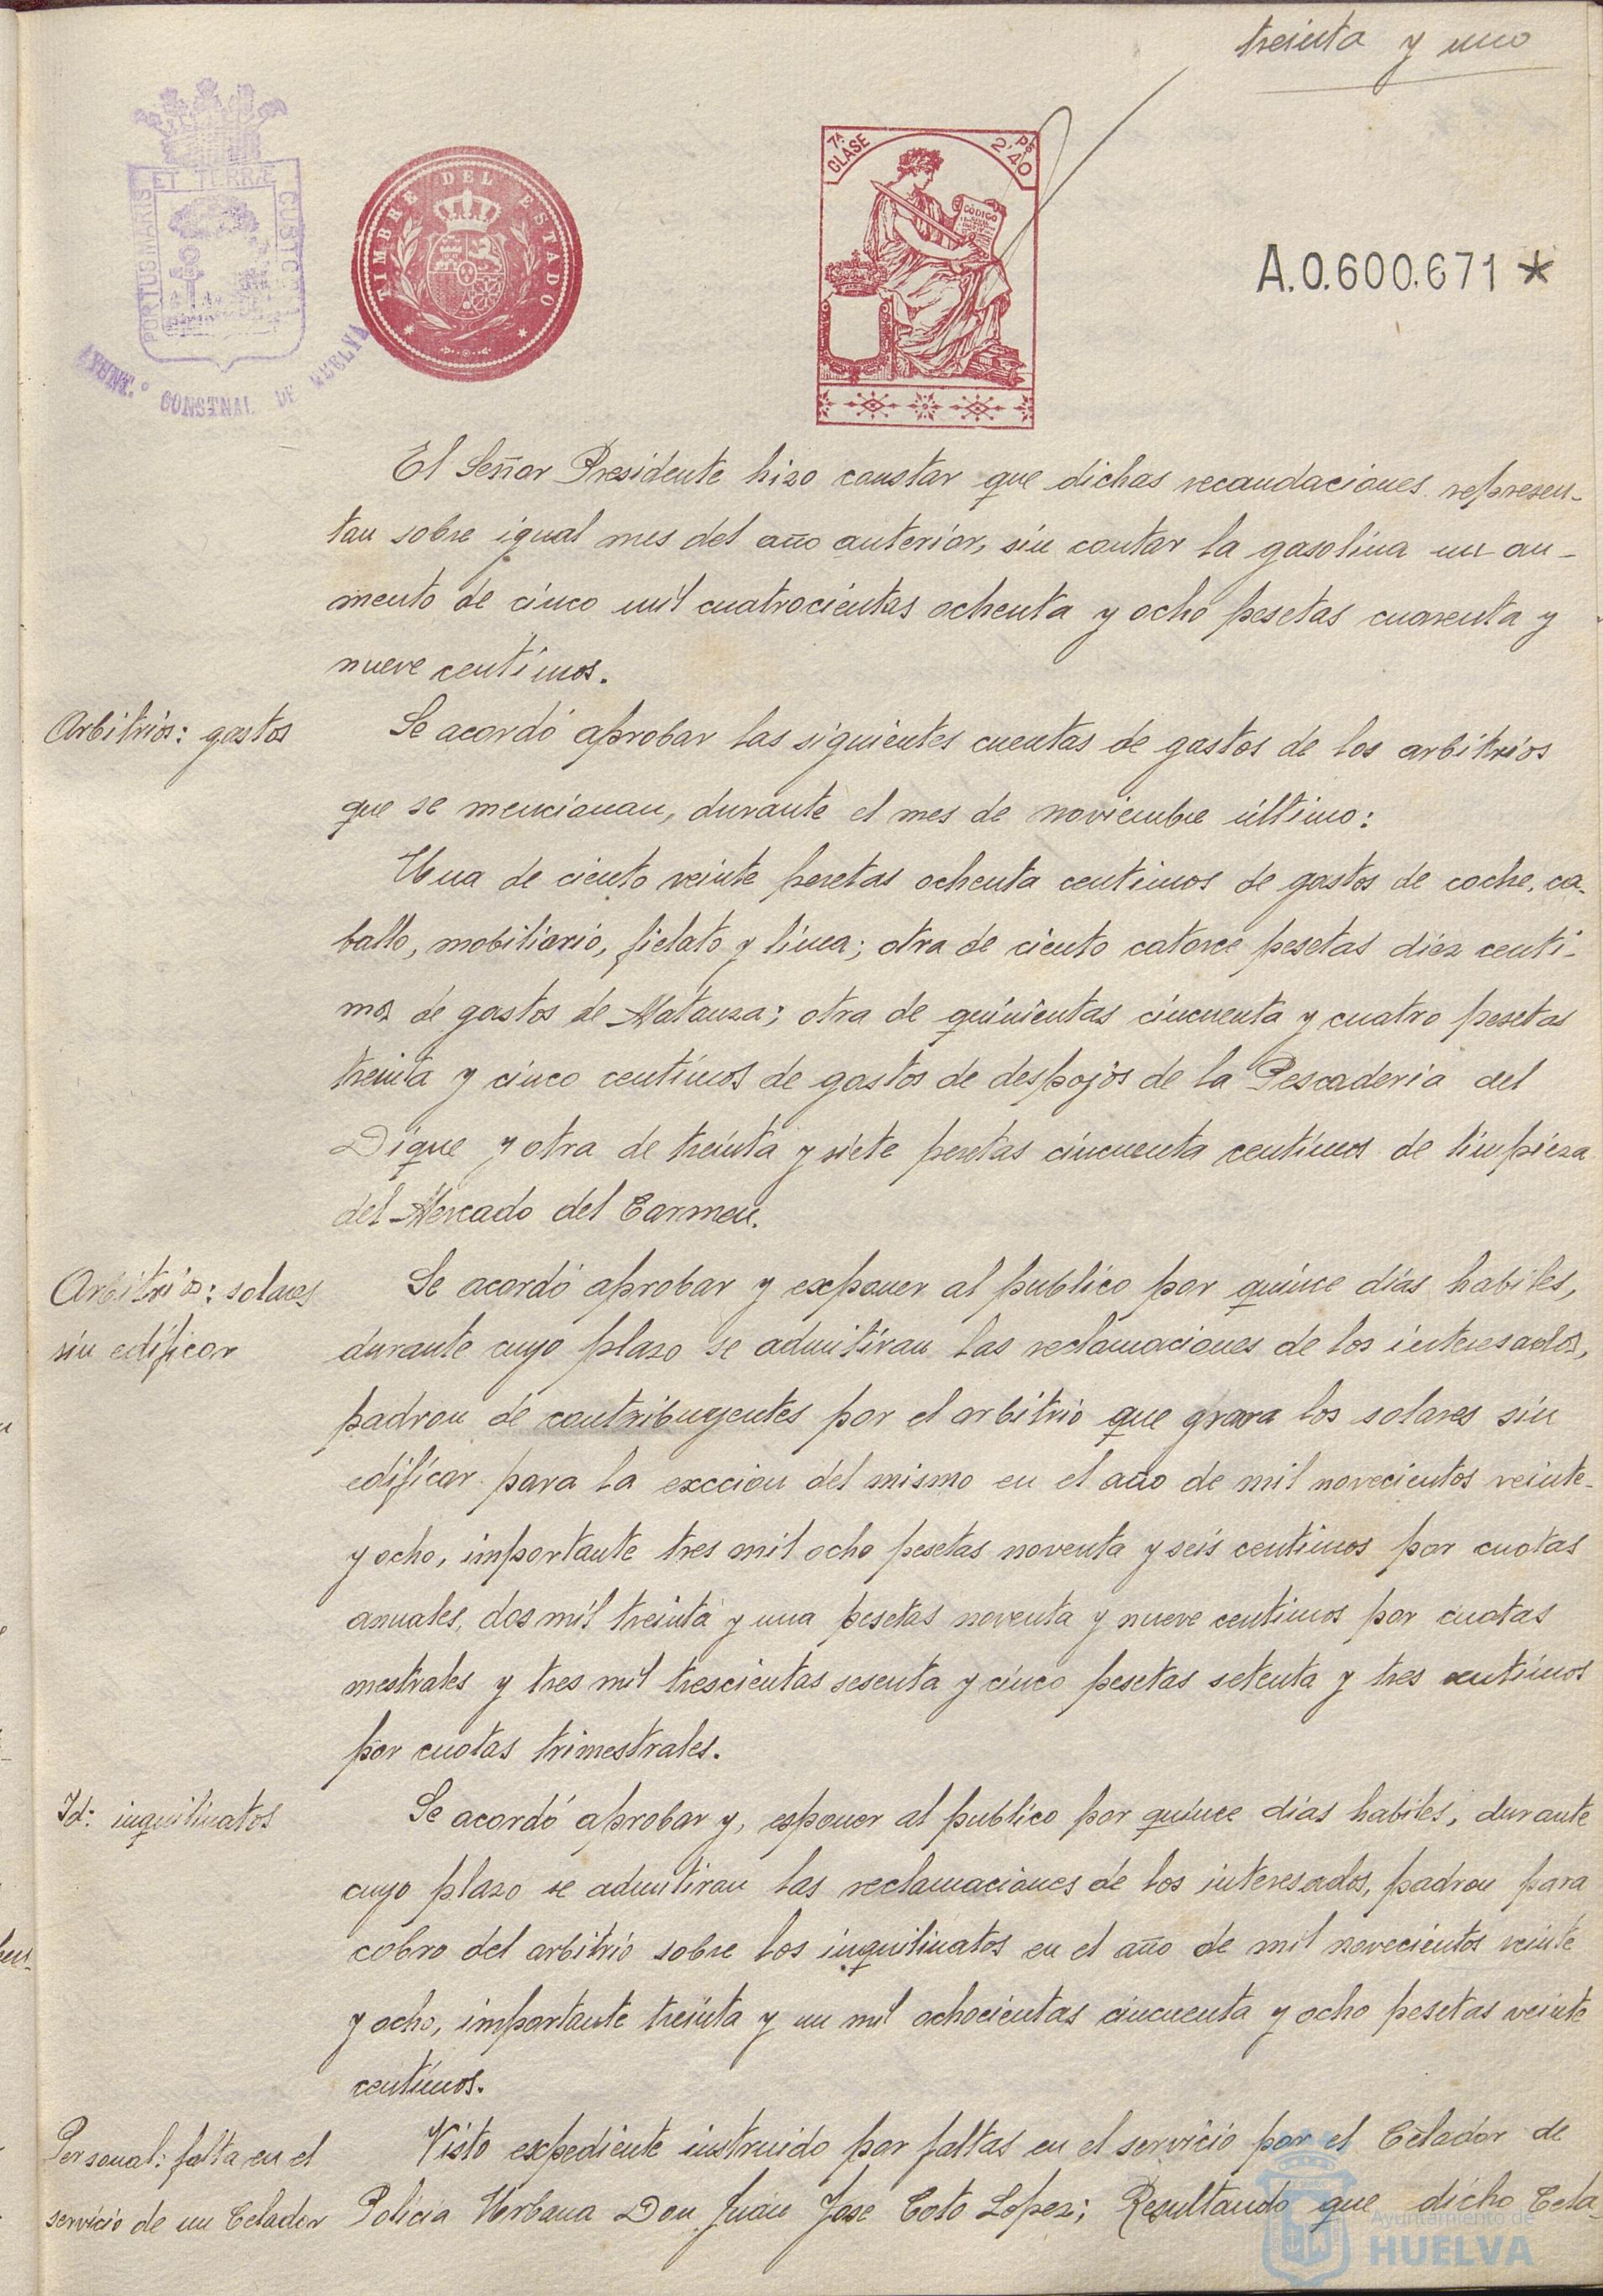 treinta y uno
PORTUS MARIS ET TERRÆ CUSTODIA
AYUNT.º CONSTNAL DE HUELVA
TIMBRE DEL ESTADO
7ª CLASE
Pts 2,40
CÓDIGO
A.0.600.671 *
El Señor Presidente hizo constar que dichas recaudaciones represen-
tan sobre igual mes del año anterior, sin contar la gasolina un au-
mento de cinco mil cuatrocientas ochenta y ocho pesetas cuarenta y
nueve centimos.
Arbitrios: gastos
Se acordó aprobar las siguientes cuentas de gastos de los arbitrios
que se mencionan, durante el mes de noviembre último:
Una de ciento veinte pesetas ochenta centimos de gastos de coche, ca-
ballo, mobiliario, fielato y linea; otra de ciento catorce pesetas diez centi-
mos de gastos de Matanza; otra de quinientas cincuenta y cuatro pesetas
treinta y cinco centimos de gastos de despojos de la Pescaderia del
Dique y otra de treinta y siete pesetas cincuenta centimos de limpieza
del Mercado del Carmen.
Arbitrios: solares
sin edificar
Se acordó aprobar y exponer al publico por quince dias habiles,
durante cuyo plazo se admitiran las reclamaciones de los interesados,
padron de contribuyentes por el arbitrio que grava los solares sin
edificar para la exccion del mismo en el año de mil novecientos veinte-
y ocho, importante tres mil ocho pesetas noventa y seis centimos por cuotas
anuales, dos mil treinta y una pesetas noventa y nueve centimos por cuotas
mestrales y tres mil trescientas sesenta y cinco pesetas setenta y tres centimos
por cuotas trimestrales.
Id: inquilinatos
Se acordó aprobar y, esponer al publico por quince dias habiles, durante
cuyo plazo se admitiran las reclamaciones de los interesados, padron para
cobro del arbitrio sobre los inquilinatos en el año de mil novecientos veinte
y ocho, importante treinta y un mil ochocientas cincuenta y ocho pesetas veinte
centimos.
Personal: falta en el
servicio de un Celador
Visto expediente instruido por faltas en el servicio por el Celador de
Policia Urbana Don Juan Jose Coto Lopez; Resultando que dicho Cela-
Ayuntamiento de
HUELVA